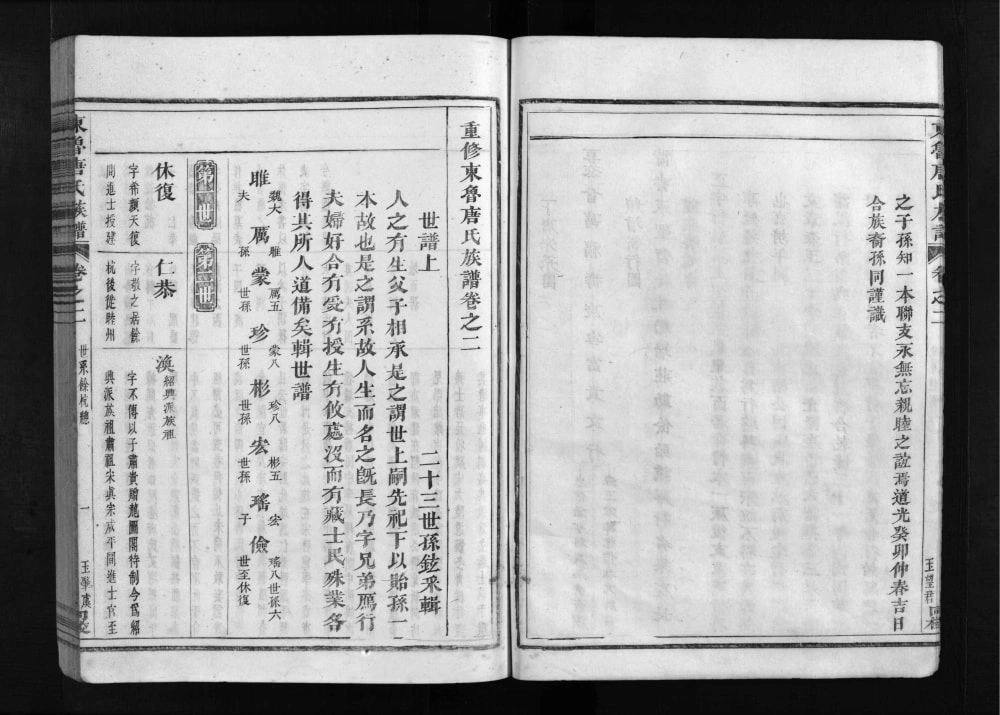 之子孫知一本聯支永無忘親睦之誼焉道光癸卯仲春吉日
合族裔孫同謹識
重修東魯唐氏族譜卷之二
世譜上
二十三世孫鉉采輯
人之有生父子相承是之謂世上嗣先祀下以貽孫一
本故也是之謂系故人生而名之既長乃字兄弟鴈行
夫婦好合有受有授生有攸處沒而有藏士民殊業各
得其所人道備矣輯世譜
雎 魏大夫
厲 雎孫
蒙 厲五世孫
珍 蒙八世孫
彬 珍八世孫
宏 彬五世孫
瑤 宏子
儉 瑤八世孫六世至休復
第一世
第二世
休復
字希顏天復
間進士授建
仁恭
杭後從睦州
渙 紹興派族祖
字不傳以子肅貴贈龍圖閣待制今爲紹
興派族祖肅祖宋眞宗咸平間進士官至
東魯唐氏族譜
卷之二
世系餘杭總
一